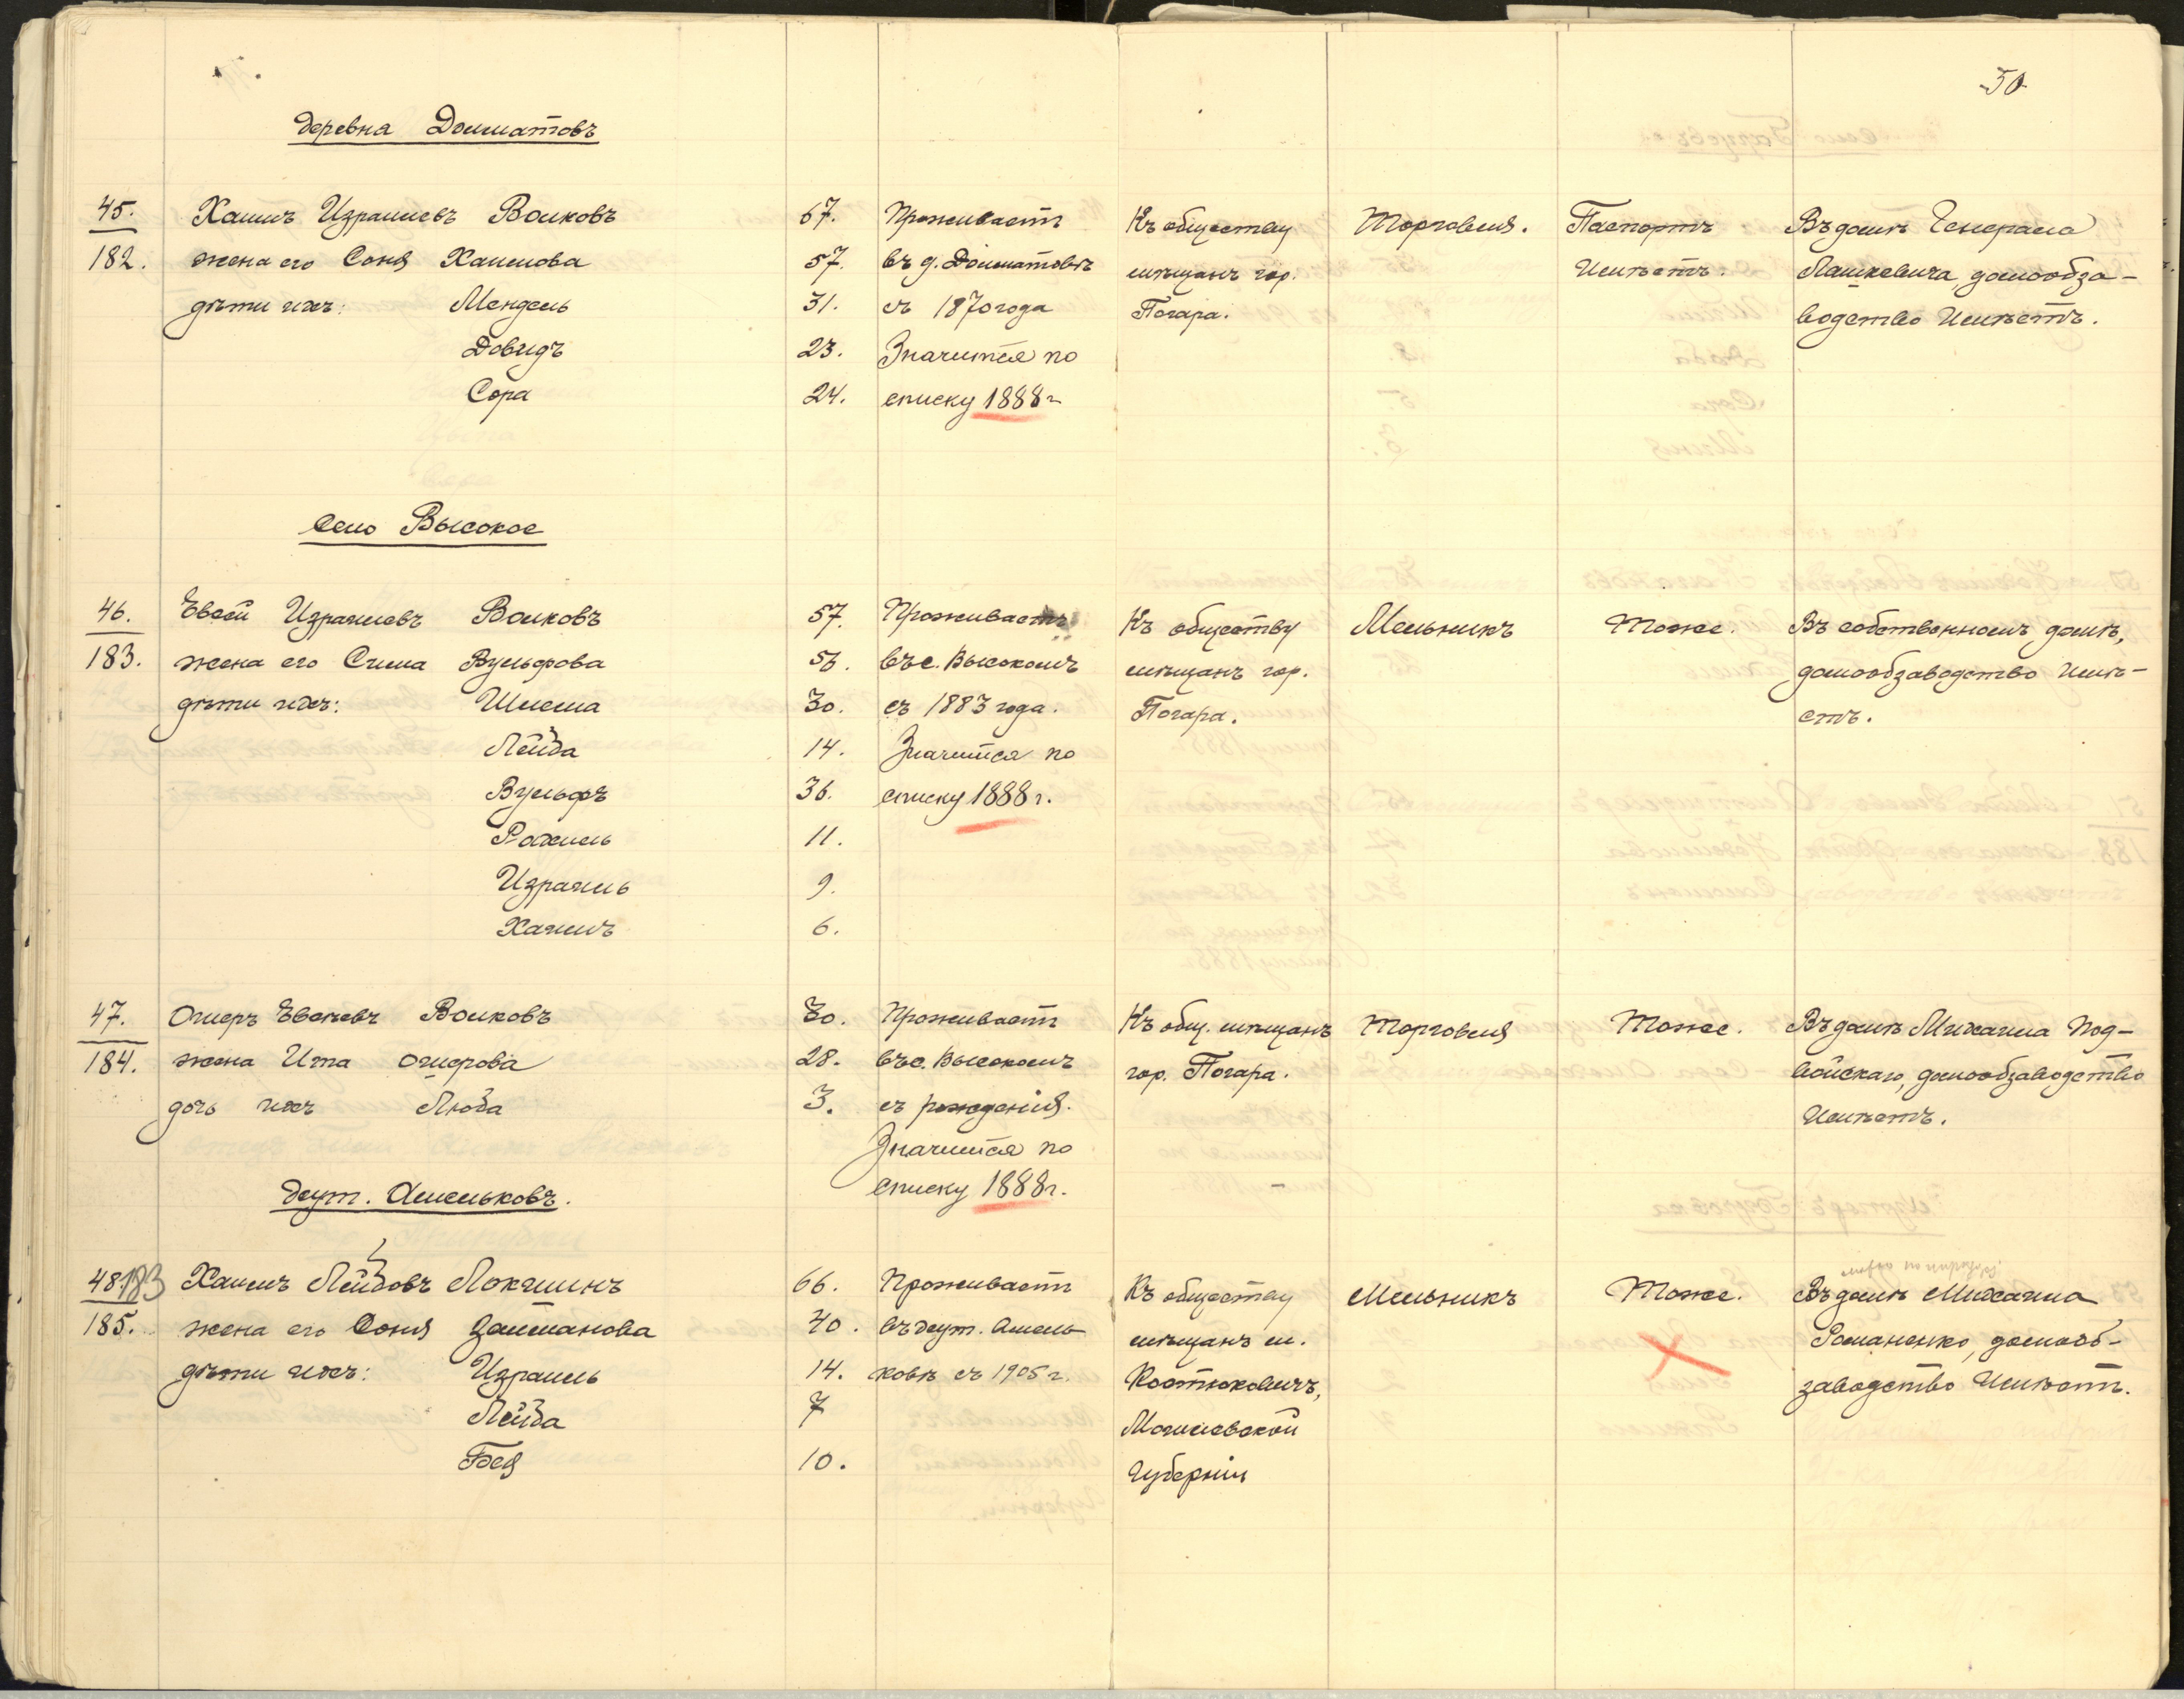 50
деревня Долматовъ
45. Хаимъ Израилевъ Волковъ 67. Проживаетъ Къ обществу Торговля. Паспортъ Въ домѣ Генерала
182. жена его Соня Хаимова 57. въ д. Долматовѣ мѣщанъ гор. Имѣетъ. Лашкевича, домообза-
дѣти ихъ: Мендель 31. съ 1870 года Погара. водство Имѣетъ.
Довидъ 23. Значится по
Сора 24. списку 1888 г
Село Высокое
46. Евсей Израилевъ Волковъ 57. Проживаетъ Къ обществу Мельникъ Тоже. Въ собственномъ домѣ,
183. жена его Сима Вульфова 56. въ с. Высокомъ мѣщанъ гор. домообзаводство Имѣ-
дѣти ихъ: Шлема 30. съ 1883 года. Погара. етъ.
Лейба 14. Значится по
Вульфъ 36. списку 1888 г.
Рахиль 11.
Израиль 9.
Хаимъ 6.
47. Ошеръ Евсеевъ Волковъ 30. Проживаетъ Къ общ. мѣщанъ Торговля Тоже. Въ домѣ Михаила Под-
184. жена Ита Ошерова 28. въ с. Высокомъ гор. Погара. войскаго, домообзаводство
дочь ихъ Люба 3. съ рожденія. Имѣетъ.
Значится по
списку 1888 г.
хут. Амельковъ.
48. 183 Хаимъ Лейбовъ Локшинъ 66. Проживаетъ Къ обществу Мельникъ Тоже. Въ домѣ Михаила
185. жена его Соня Залманова 40. въ хут. Амель- мѣщанъ м. Романенко, домооб-
дѣти ихъ: Израиль 14. ковѣ съ 1905 г. Костюковичъ, заводство Имѣетъ.
Лейба 7 Могилевской
Бея 10. Губерніи